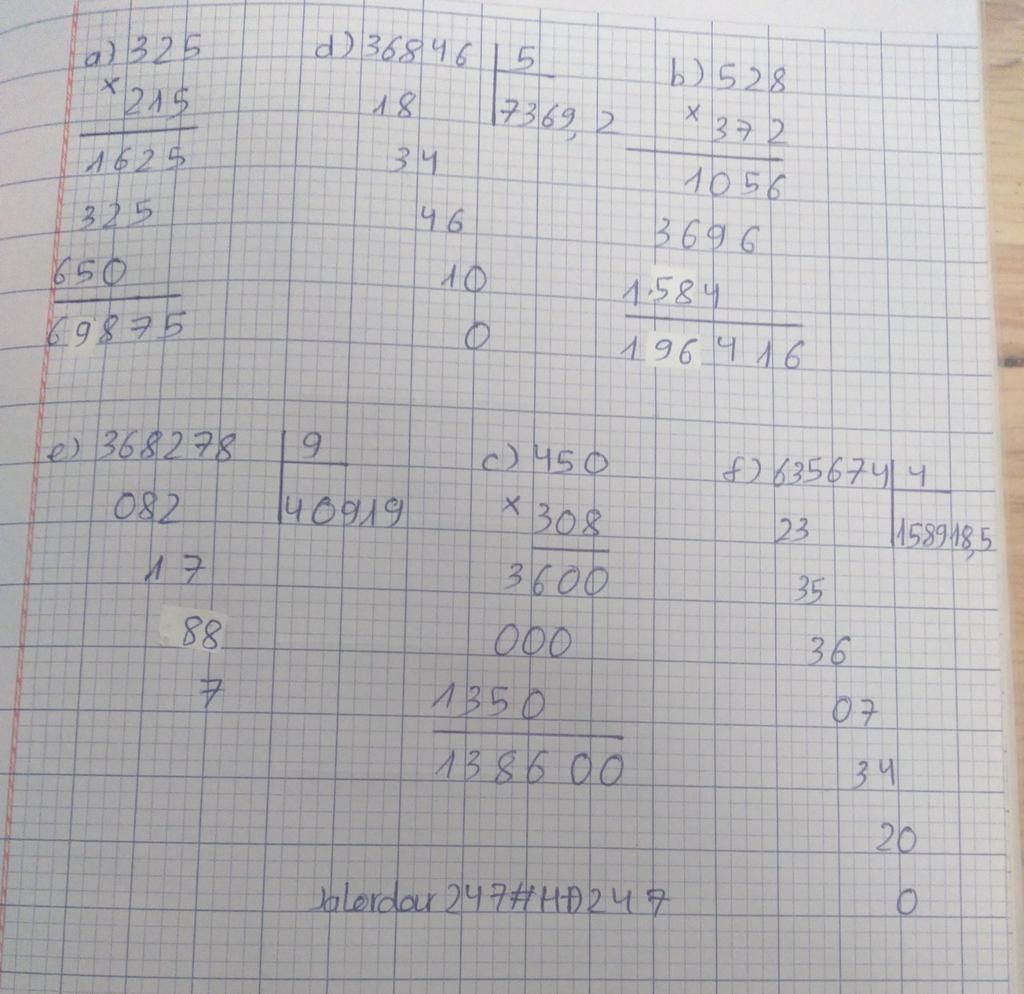 a) 325
× 215
1625
325
650
69875
d) 36846 5
18 7369,2
34
46
10
0
b) 528
× 372
1056
3696
1584
196416
e) 368278 9
082 40919
17
88
7
c) 450
× 308
3600
000
1350
138600
f) 635674 4
23 158918,5
35
36
07
34
20
0
247#HD247